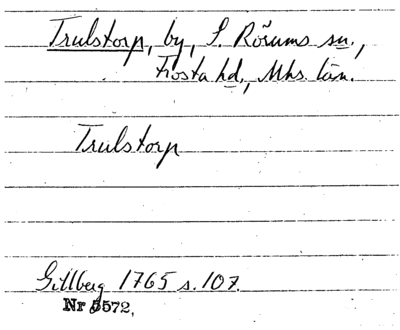 Trulstorp, by, S. Rörums sn.,
Frosta hd., Mhs. län.
Trulstorp
Gillberg 1765 s. 107.
Nr 5572,